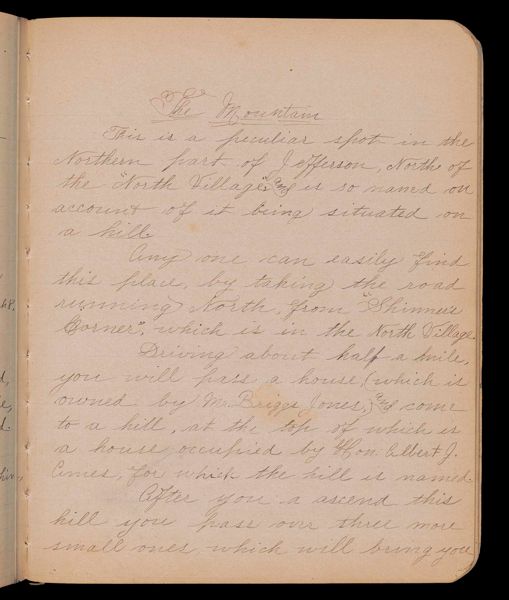 The Mountain
This is a peculiar spot in the
Northern part of Jefferson, North of
the "North Village" and is so named on
account of it being situated on
a hill.
Any one can easily find
this place, by taking the road
running North, from "Skinner's
Corner", which is in the North Village.
Driving about half a mile,
you will pass a house, (which is
owned by Mr. Briggs Jones,) and come
to a hill, at the top of which is
a house occupied by Hon. Albert J.
Ames, for which the hill is named.
After you a ascend this
hill you pass over three more
small ones which will bring you